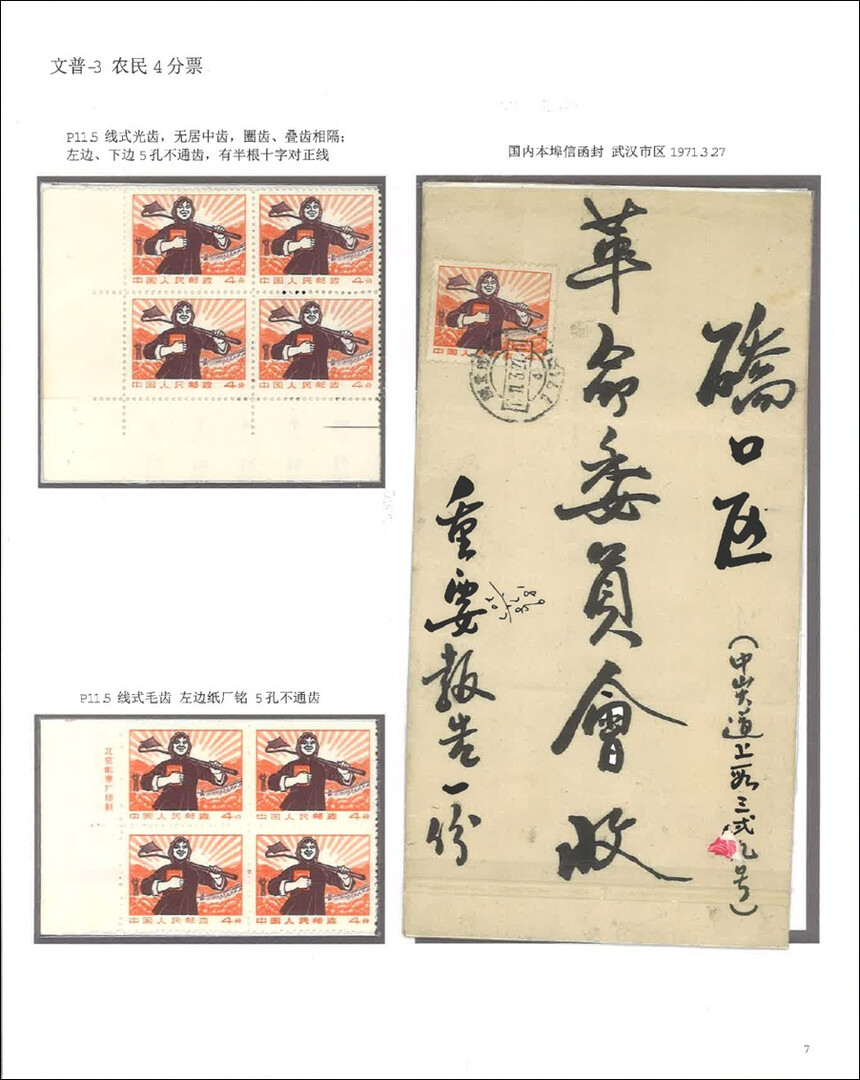 文普-3 农民4分票
P11.5 线式光齿，无居中齿，圈齿、叠齿相隔；
左边、下边5孔不通齿，有半根十字对正线
中国人民邮政 4分
中国人民邮政 4分
中国人民邮政 4分
中国人民邮政 4分
国内本埠信函封 武汉市区 1971.3.27
硚口区
(中山大道上一段三弍九号)
革命委員會收
重要报告一份
中国人民邮
P11.5 线式毛齿 左边纸厂铭 5孔不通齿
北京邮票厂印制
中国人民邮政 4分
中国人民邮政 4分
中国人民邮政 4分
中国人民邮政 4分
7